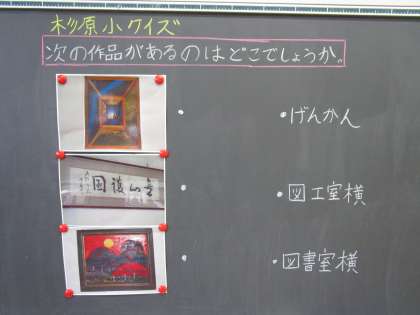 杉原小クイズ
次の作品があるのはどこでしょうか。
・げんかん
・図工室横
・図書室横